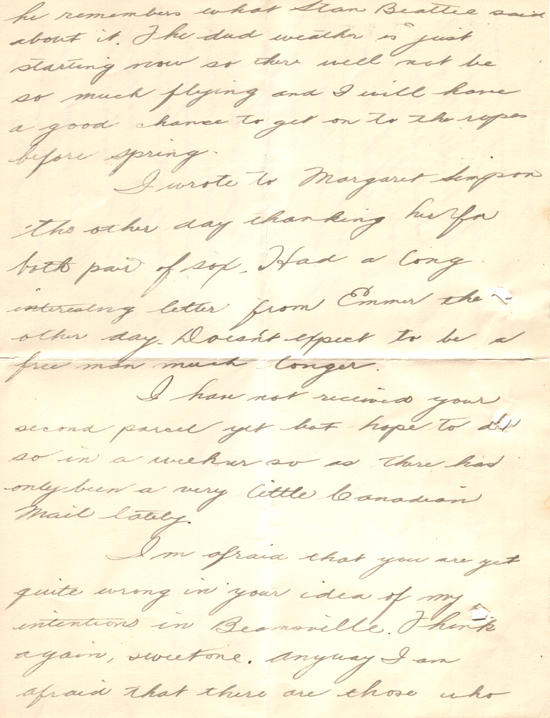 he remembers what Stan Beattie said
about it. The dud weather is just
starting now so there will not be
so much flying and I will have
a good chance to get on to the ropes
before spring.
I wrote to Margaret Simpson
the other day thanking her for
both pair of sox. Had a long
interesting letter from Emmer the
other day. Doesn't expect to be a
free man much longer.
I have not received your
second parcel yet but hope to do
so in a week or so as there has
only been a very little Canadian
Mail lately.
I'm afraid that you are yet
quite wrong in your idea of my
intentions in Beamsville. Think
again, sweet one. Anyway I am
afraid that there are those who